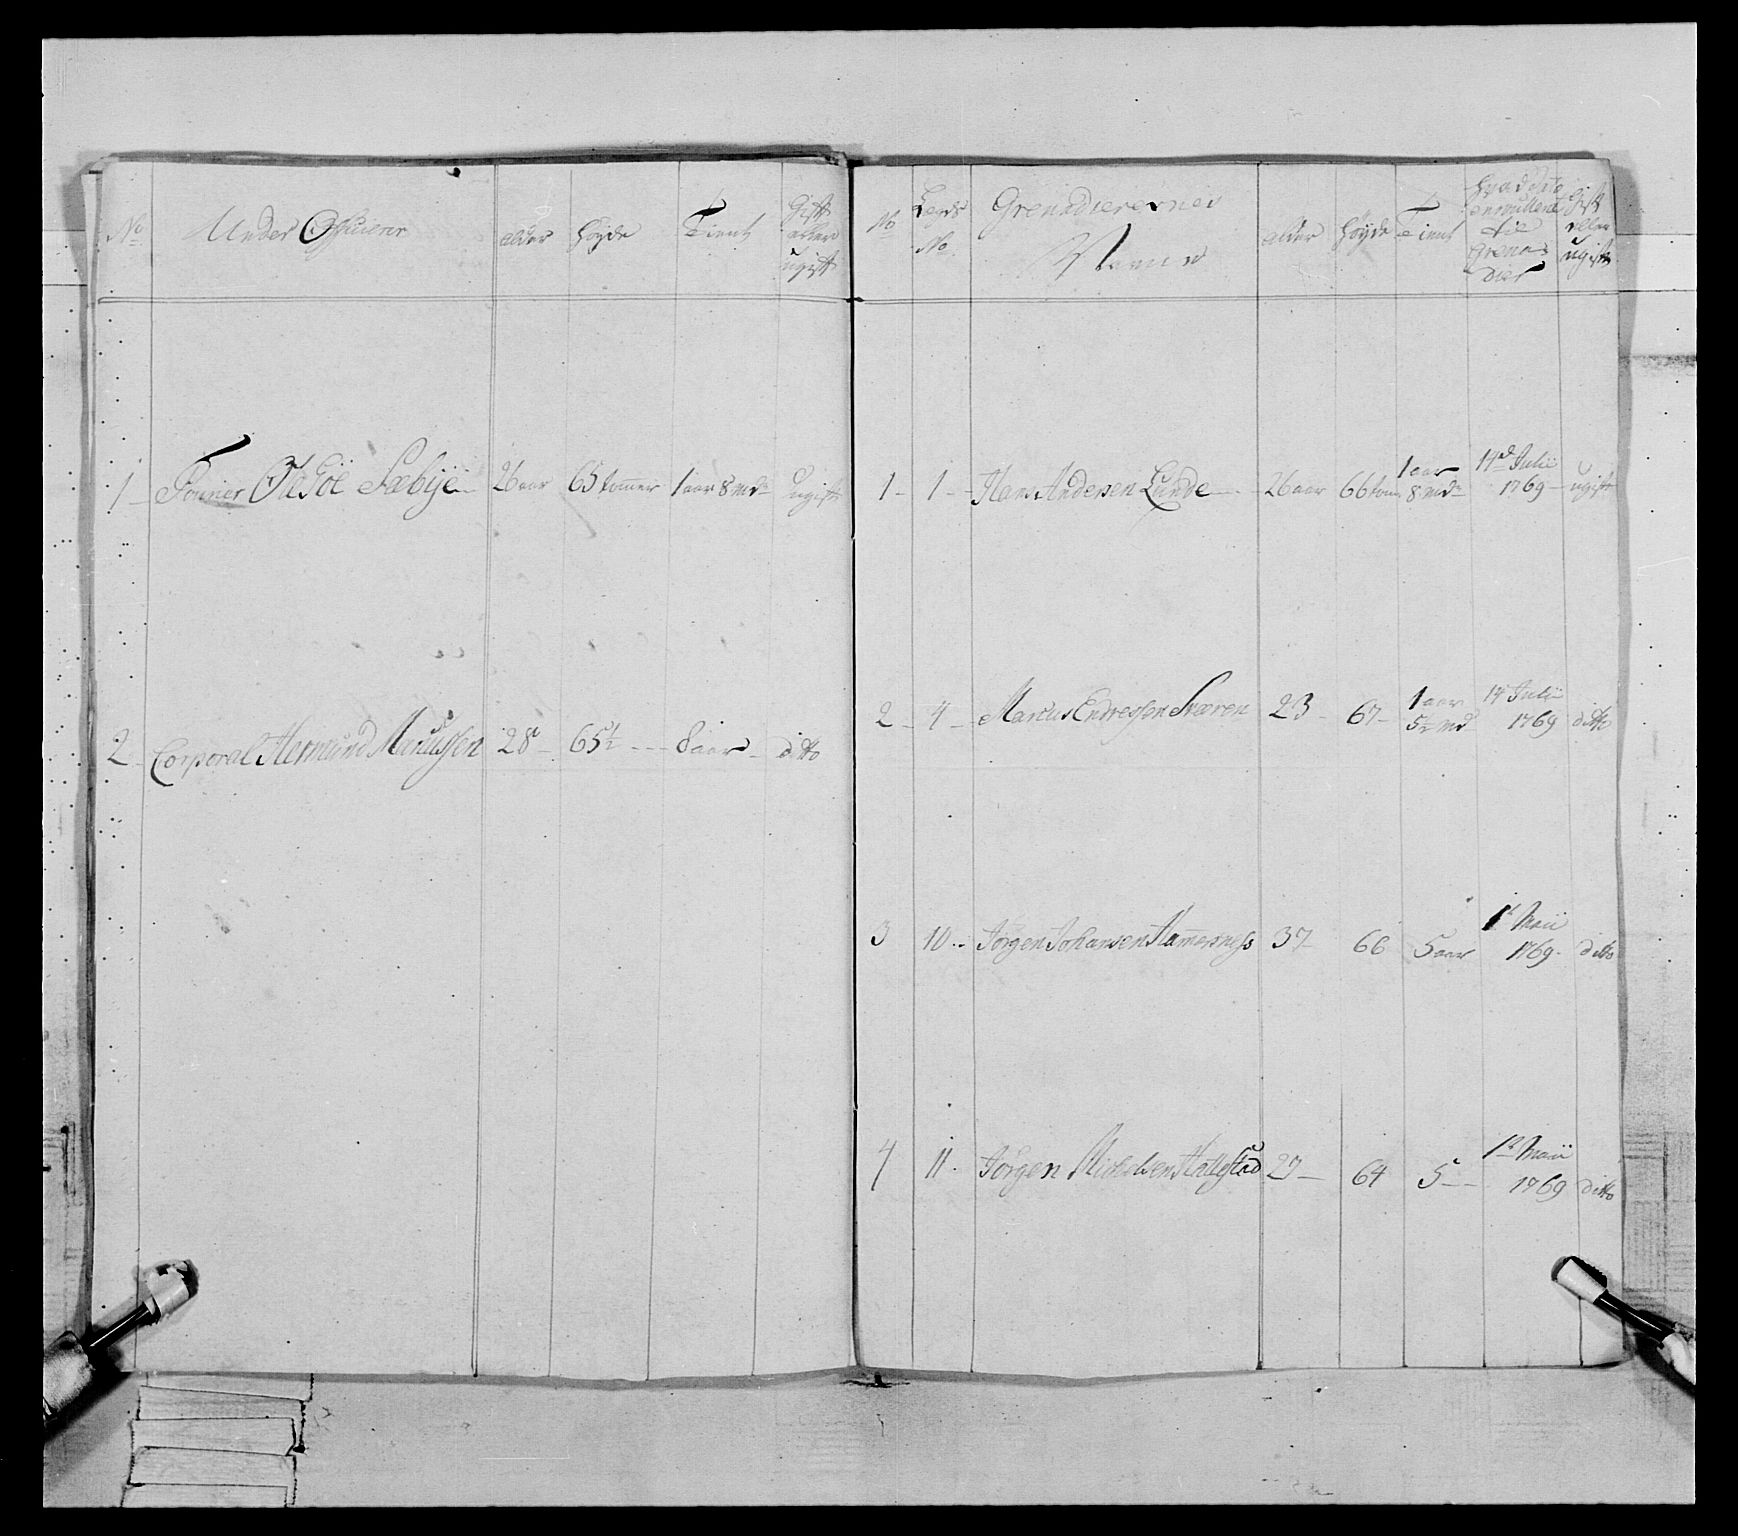 No
Under Officierer
alder
Høyde
Tient
Gift
eller
ugift
1 Fourier Ole Föe Sæbye 26 aar 65 tommer 1 aar 8 md ugift
2 Corporal Hermund Monussen 28 65 1/2 8 aar ditto
No
Legds
No
Grenadierernes
Navne
alder
Høyde
Tient
Gift
eller
ugift
1 1 Hans Andersen Lunde 26 aar 66 tom 1 aar
8 md 14d Julii
1769 ugift
2 4 Marcus Endressen Sværen 23 67 1 aar
5 1/2 md 14 Julii
1769 ditto
3 10 Jørgen Johansen Hamersness 37 66 5 aar 1d Maii
1769 ditto
4 11 Jørgen Michelsen Hallestad 27 64 5 1d Maii
1769 ditto